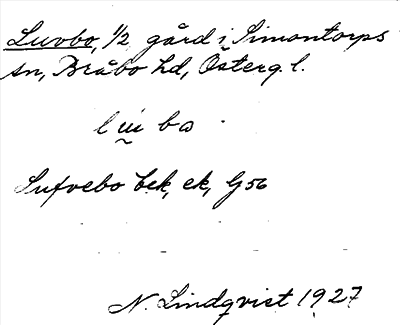 Luvbo, 1/2 gård i Simontorps
sn, Bråbo hd, Österg. l.
Lufvebo bek, ek, G 56
N. Lindqvist 1927